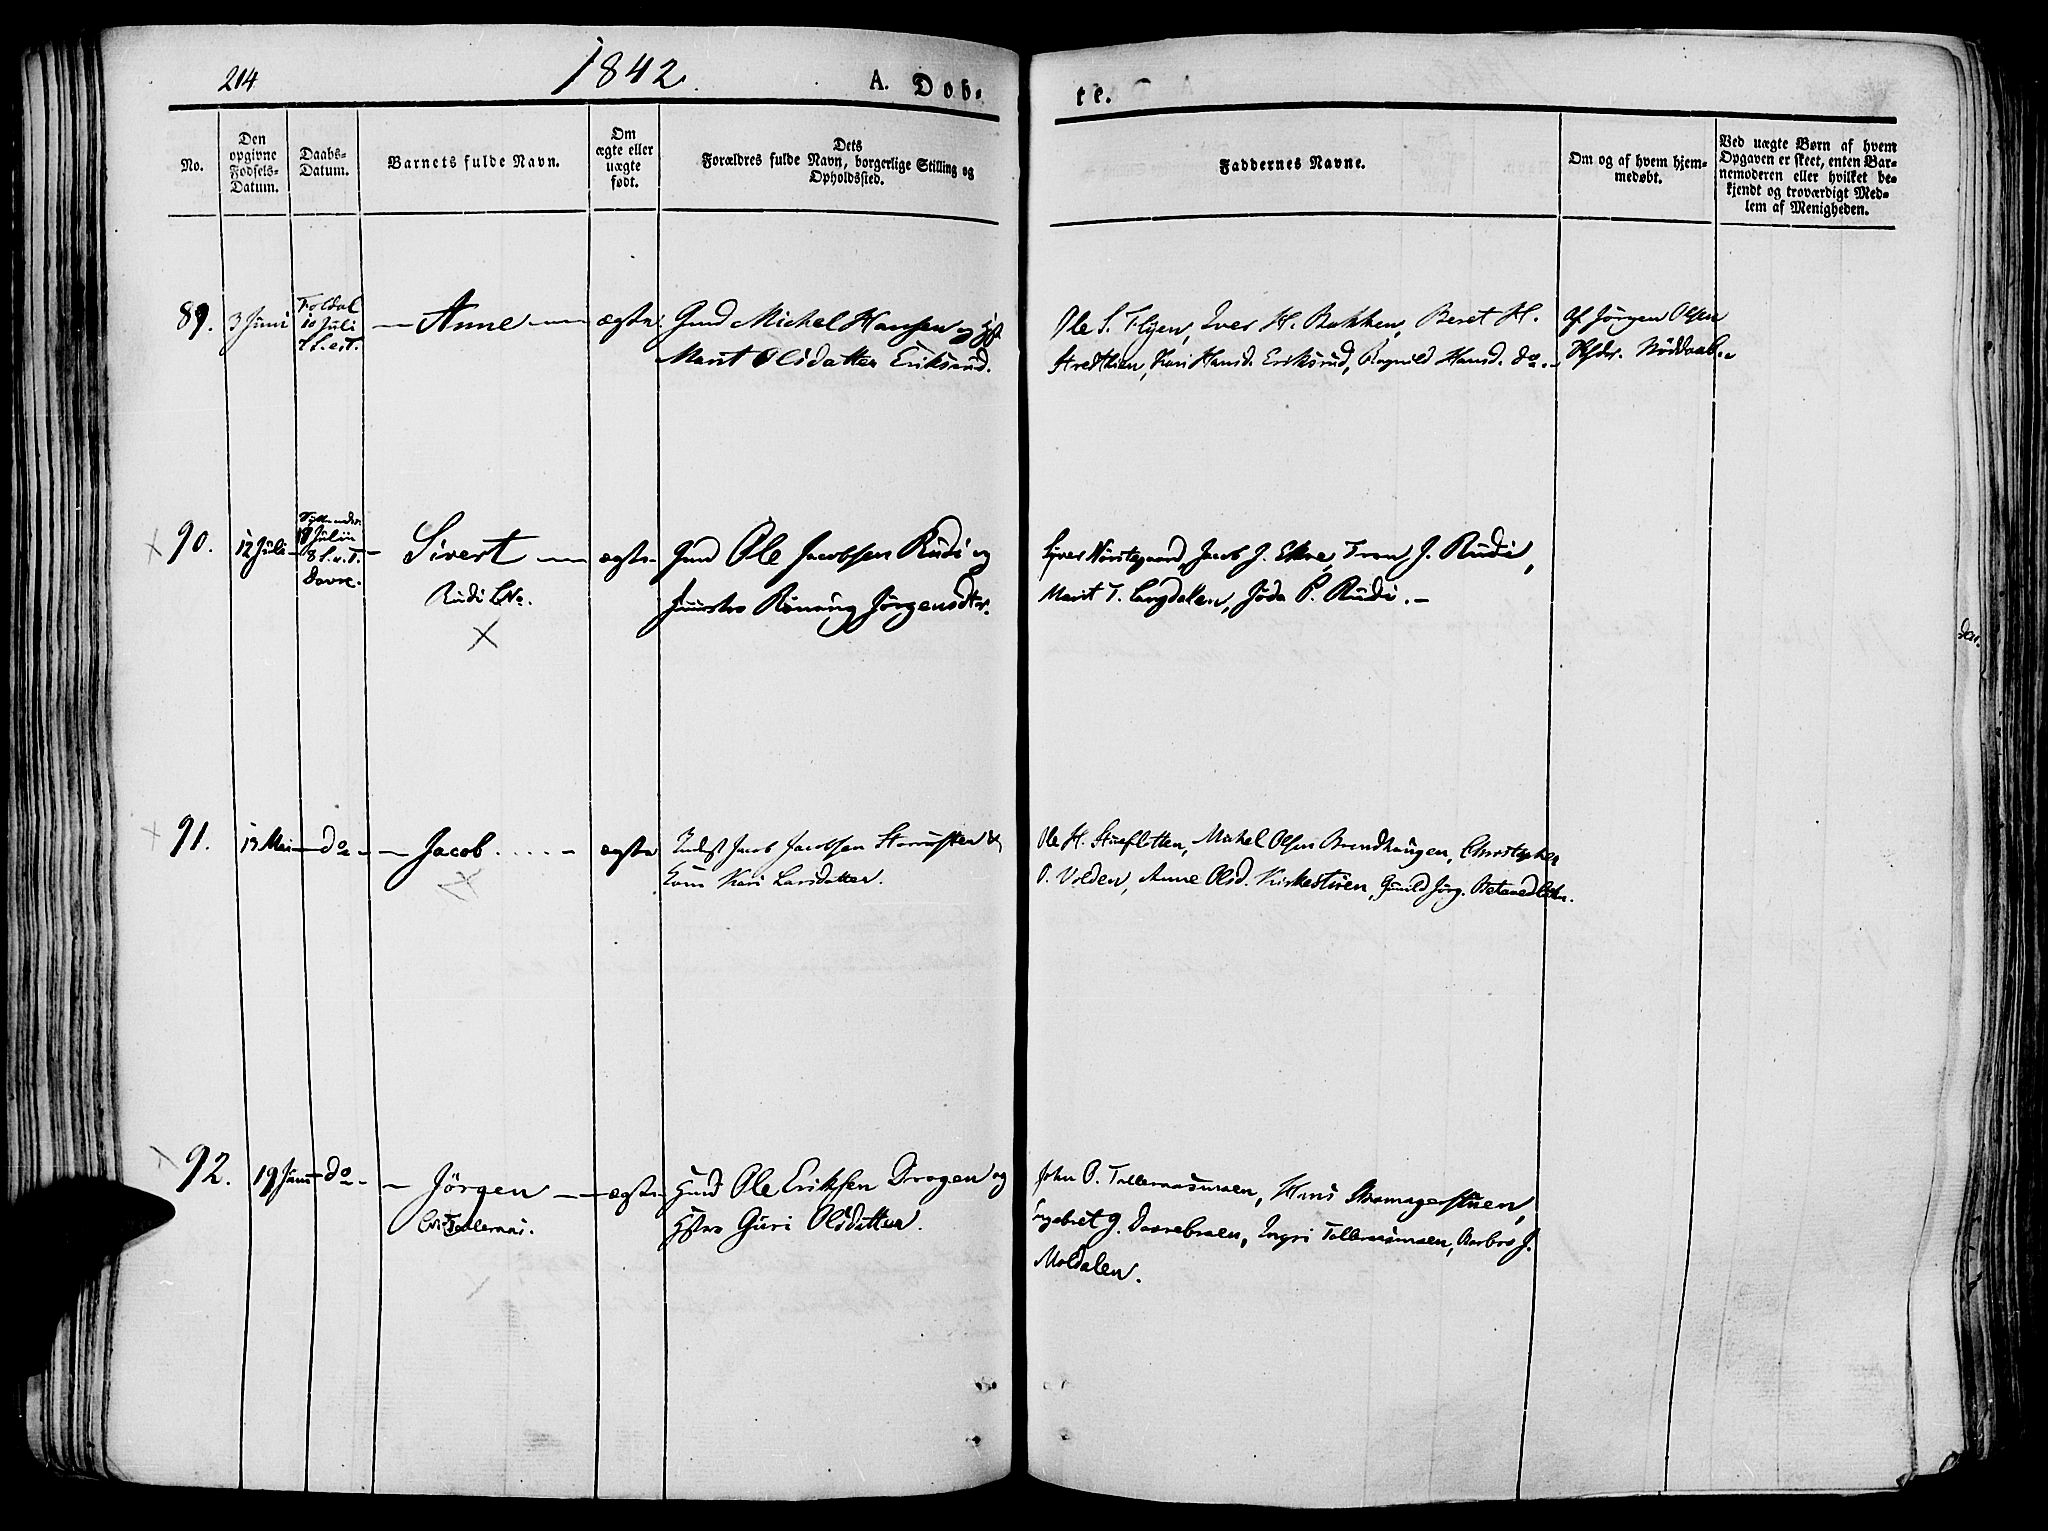 214
1842.
A. Dob-
te.
No.
Den
opgivne
Fødsels-
Datum.
Daabs-
Datum.
Barnets fulde Navn.
Om
ægte eller
uægte
født.
Dets
Forældres fulde Navn, borgerlige Stilling og
Opholdssted.
Faddernes Navne.
Om og af hvem hjem-
medøbt.
Ved uægte Børn af hvem
Opgaven er skeet, enten Bar-
nemoderen eller hvilket be-
kjendt og troværdigt Med-
lem af Menigheden.
89.
3 Juni
Foldal
10 Juli
7 S. e. T.
Anne
ægte
Gmd Michel Hansen og
Marit Olsdatter Eriksrud.
Ole S. Flyen, Iver H. Bakken, Beret H.
Kari Hansd. Eriksrud, Ragnild Hansd. do.
Af Jørgen Olsen
Nøddaab.
90.
12 Juli
Juli
8 S. e. T.
Dovre.
Sivert
Rudi
ægte
Gmd Ole Jacobsen Rudi og
Rønnug Jørgensdtr.
Norstegaard, Jacob J. Ekre, Tron J. Rudi,
Marit T. Langdalen, Jøda P. Rudi.
91.
13 Mai
do
Jacob
ægte
Indst Jacob Jacobsen
Kone Kari Larsdatter.
Ole H. Stueflotten, Michel Olsen Brendhaugen, Christopher
P. Volden, Anne Olsd. Kirkestuen, Gunild Jørg.
92.
19 Juni
do
Jørgen
Tallernæs.
ægte
Gmd Ole Eriksen Drogen og
Hstro Guri Olsdatter.
John P. Tallernæsmoen, Hans
Engebret G. Dovrebraaen, Ingri Tallernæsmoen, Barbro J.
Moldalen.
den.